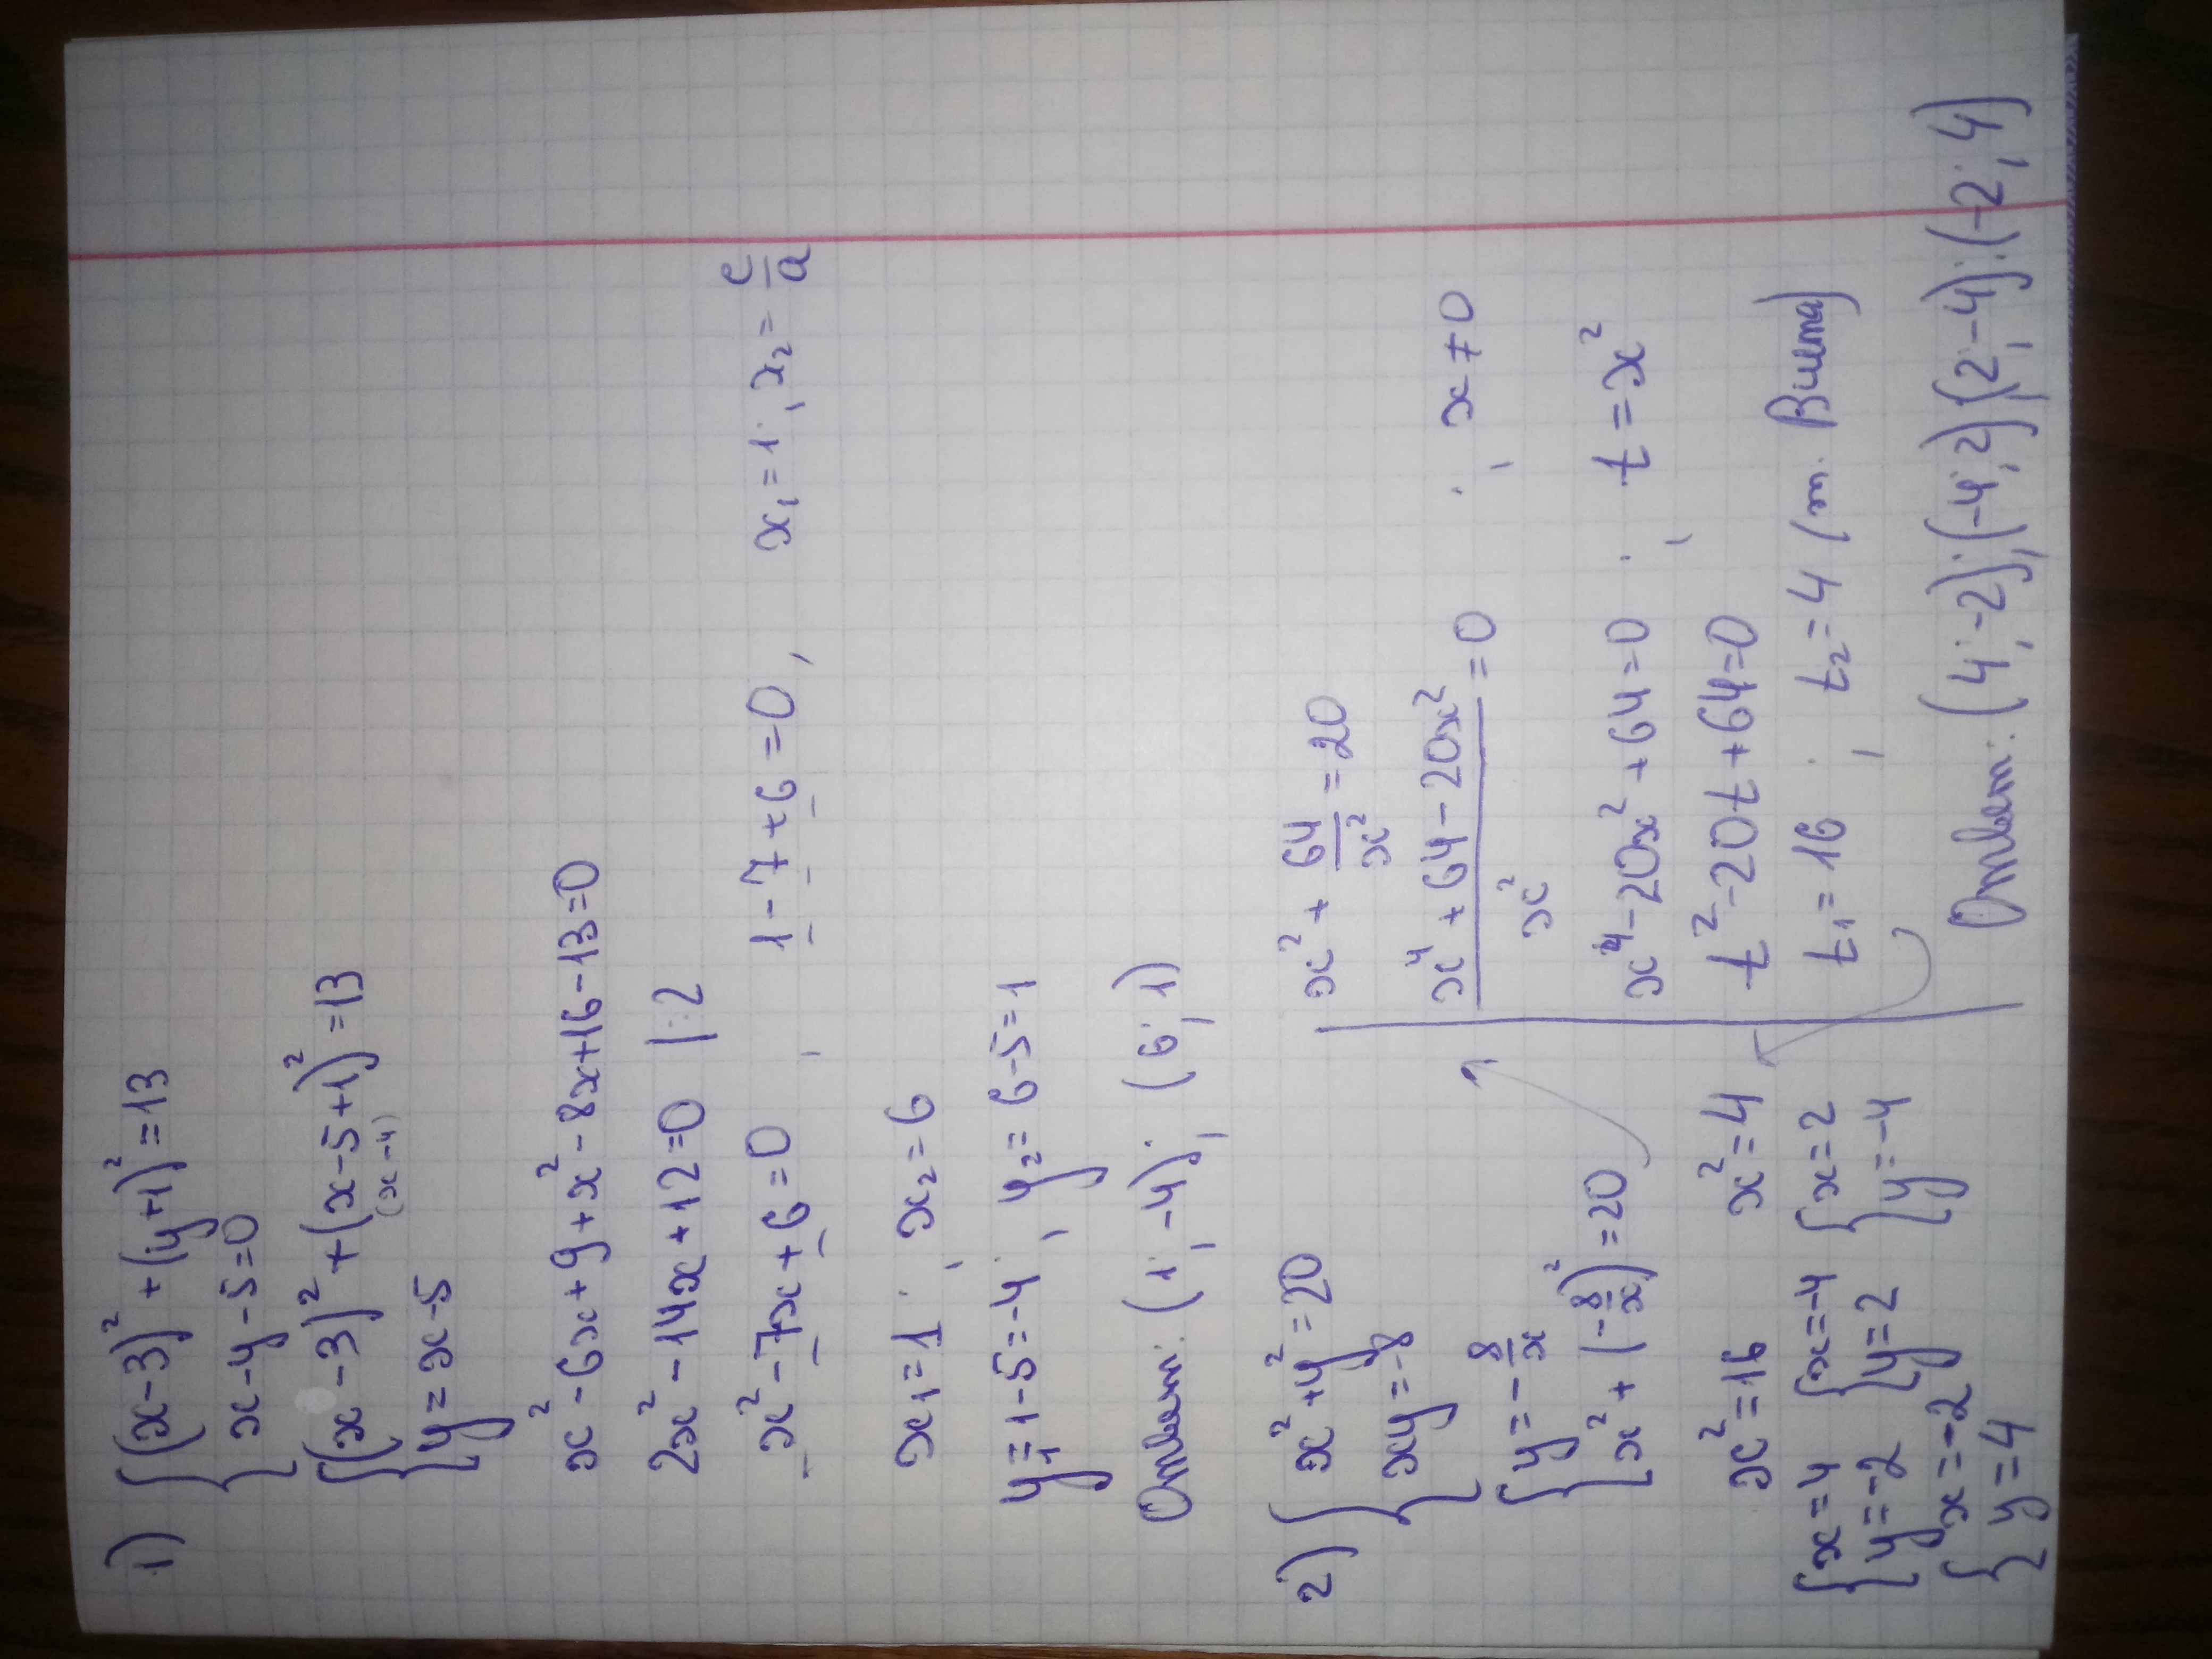 1) { (x-3)² + (y+1)² = 13
x - y - 5 = 0
{ (x-3)² + (x-5+1)² = 13
(x-4)
y = x-5
x² - 6x + 9 + x² - 8x + 16 - 13 = 0
2x² - 14x + 12 = 0 |:2
x² - 7x + 6 = 0, 1 - 7 + 6 = 0, x₁ = 1; x₂ = c/a
x₁ = 1; x₂ = 6
y₁ = 1-5 = -4; y₂ = 6-5 = 1
Ответ: (1; -4); (6; 1)
2) { x² + y² = 20
xy = -8
{ y = -8/x
x² + (-8/x)² = 20
x² + 64/x² = 20
(x⁴ + 64 - 20x²)/x² = 0; x ≠ 0
x⁴ - 20x² + 64 = 0; t = x²
t² - 20t + 64 = 0
t₁ = 16; t₂ = 4 (т. Виета)
x² = 16 x² = 4
{ x = 4 { x = -4 { x = 2
y = -2 y = 2 y = -4
{ x = -2
y = 4
Ответ: (4; -2); (-4; 2) (2; -4); (-2; 4)